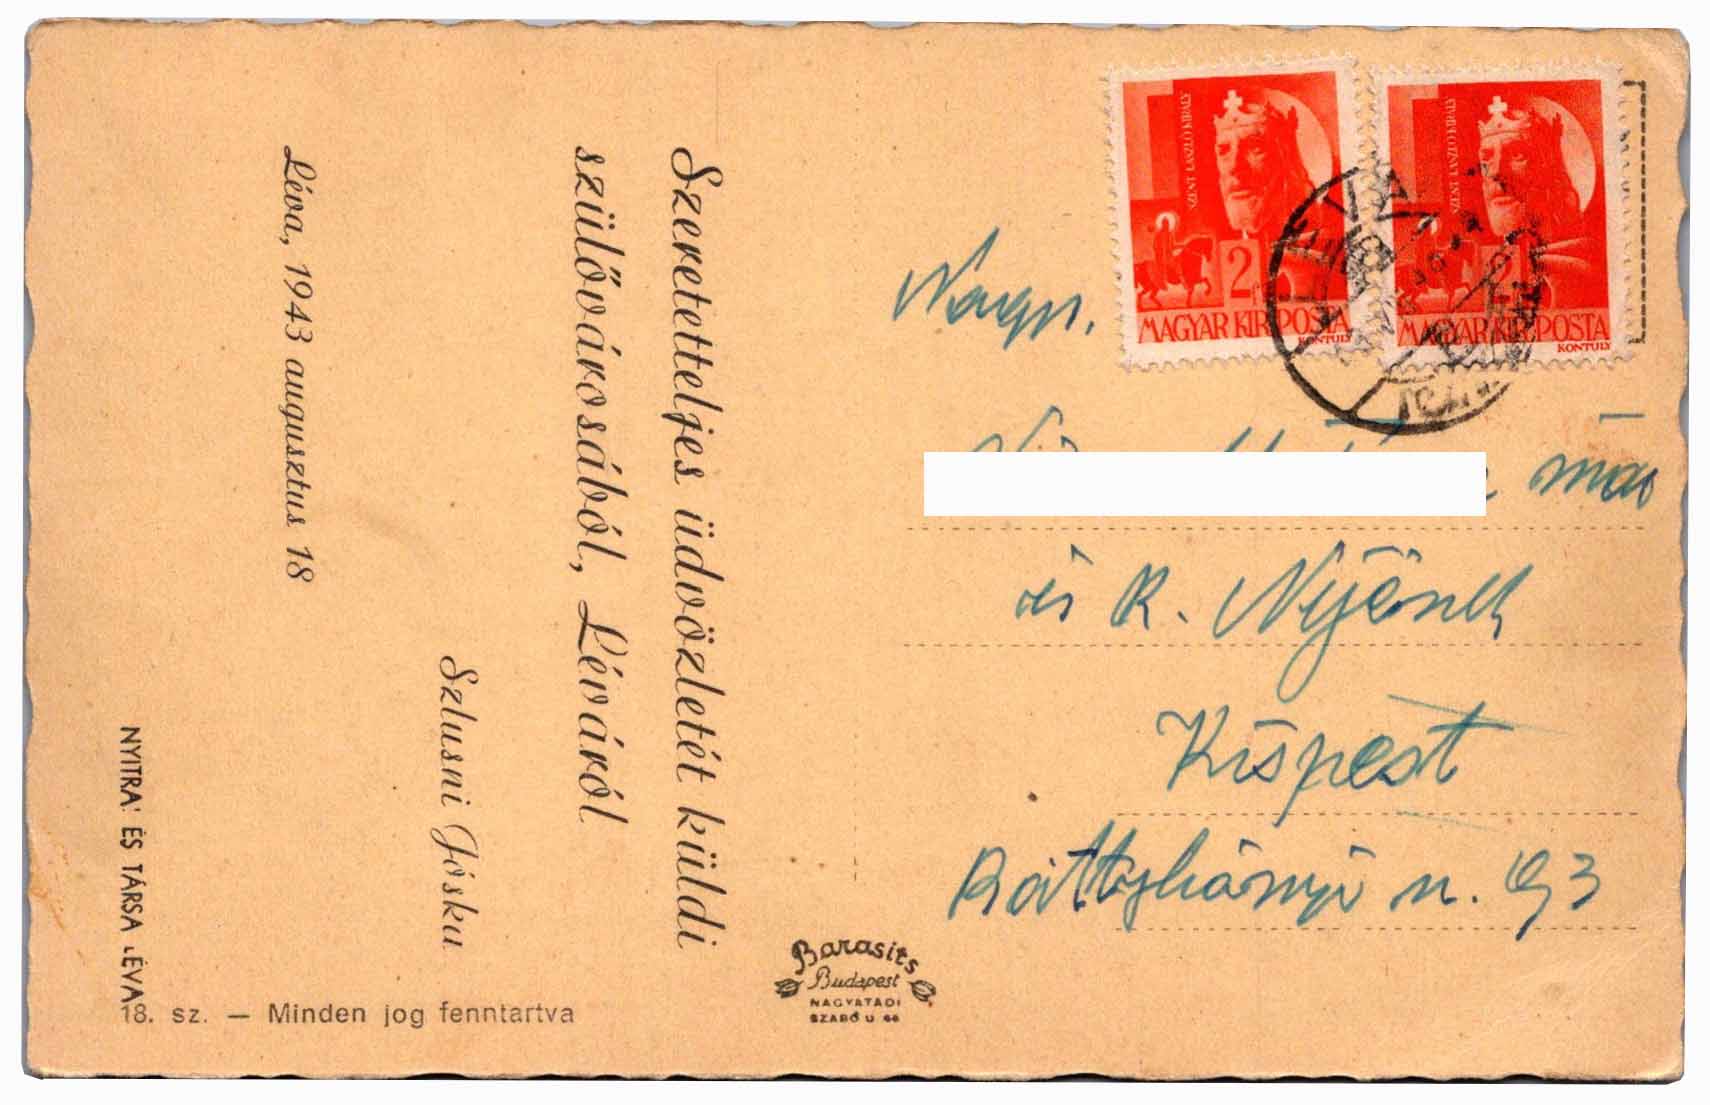 Szeretetteljes üdvözletét küldi
szülővárosából, Léváról
Szlusni Jóska
Léva, 1943 augusztus 18
NYITRAI ÉS TÁRSA LÉVA
18. sz. — Minden jog fenntartva
Barasits
Budapest
NAGYATÁDI
SZABÓ U 46
SZENT LÁSZLÓ KIRÁLY
2
MAGYAR KIR. POSTA
KONTULY
SZENT LÁSZLÓ KIRÁLY
2
MAGYAR KIR. POSTA
KONTULY
LÉVA
és K.
Kispest
Batthyányi u. 93